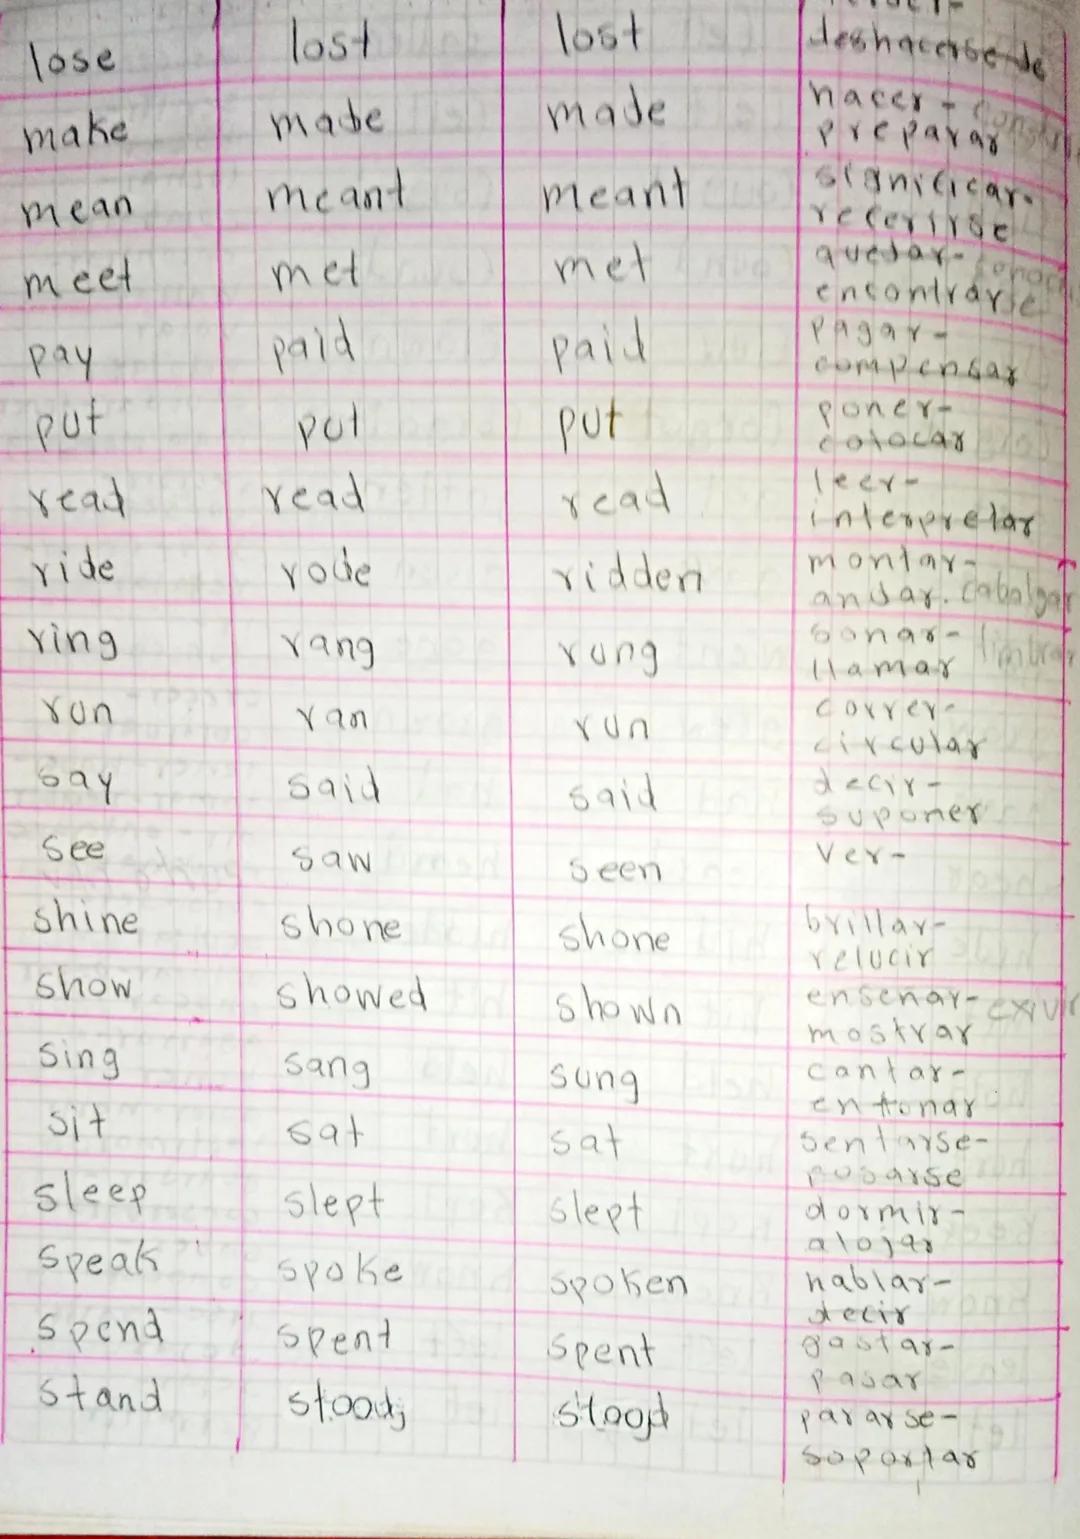 lose lost lost deshacerse de
make made made hacer -
preparar
mean meant meant significar-
referirse
meet met met quedar-
encontrarse
pay paid paid pagar-
compensar
put put put poner-
colocar
read read read leer-
interpretar
ride rode ridden montar-
andar. cabalgar
ring rang rung sonar- timbrar
llamar
run ran run correr-
circular
say said said decir-
suponer
see saw seen ver-
shine shone shone brillar-
relucir
show showed shown enseñar- exivir
mostrar
sing sang sung cantar-
entonar
sit sat sat sentarse-
posarse
sleep slept slept dormir-
alojar
speak spoke spoken hablar-
decir
spend spent spent gastar-
pasar
stand stood stood pararse-
soportar